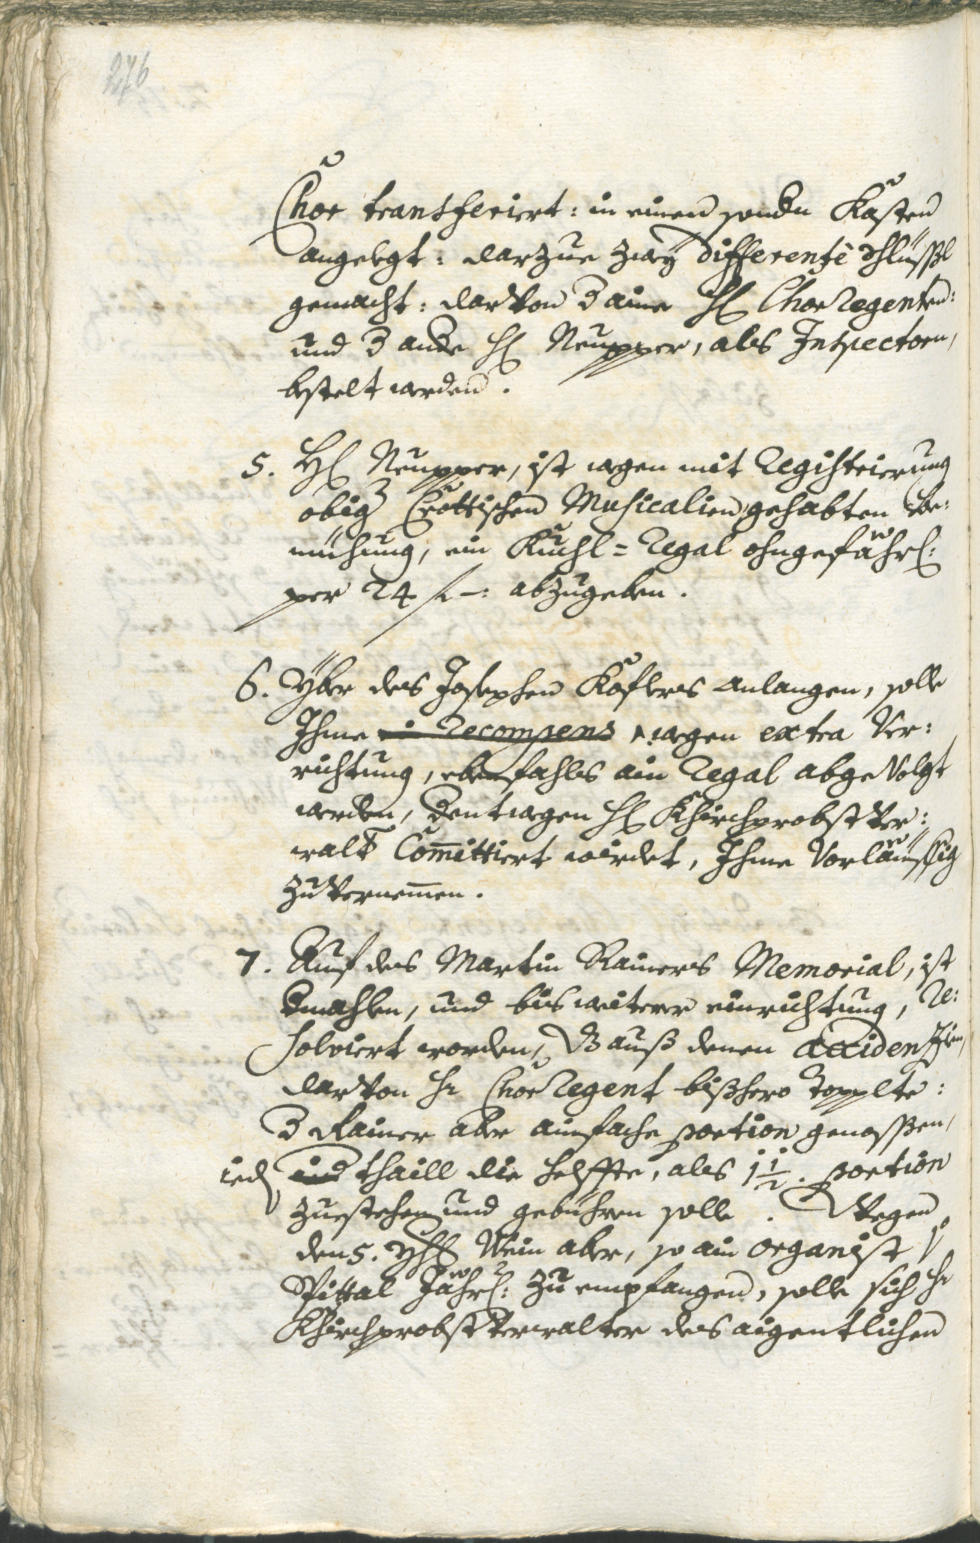 276
Chor transferiert: in einen sondn Kasten
angelegt: darzue zwaÿ differente Schlüssl
gemacht: darvon 3 aine H Chor Regenten:
und 3 ande H Neupper, als Inspectorn,
bestelt werden.
5. H Neupper, ist wegen mit Registrierung
obig Crottischen Musicalien gehabten Be:
mühung, ein Kuchl=Regal ohngefähr:
per 24 f –: abzugeben.
6. Yber des Josephen Koflers Anlangen, solle
Ihme ein Recompens wegen extra Ver:
richtung, ebenfahls ain Regal abgevolgt
werden, dentwegen H Khirchprobst Ver:
walt Com̄ittiert wirdet, Ihme vorläuffig
zuvernem̄en.
7. Auf des Martin Rainers Memorial, ist
dermahlen, und bis weiterer einrichtung, Re:
solviert worden, dz auß denen Accidenzien,
darvon H Chor Regent bißhero dopplte:
3 Rainer aber ainfache portion genossen,
ied und thaill die helffte, als 1 1/2. portion
zuestehen und gebühren solle. Wegen
den 5. Yhr Wein aber, so ain organist
Spittal Jährl: zu empfangen, solle sich H
Khirchprobst Verwalter des aigentlichen